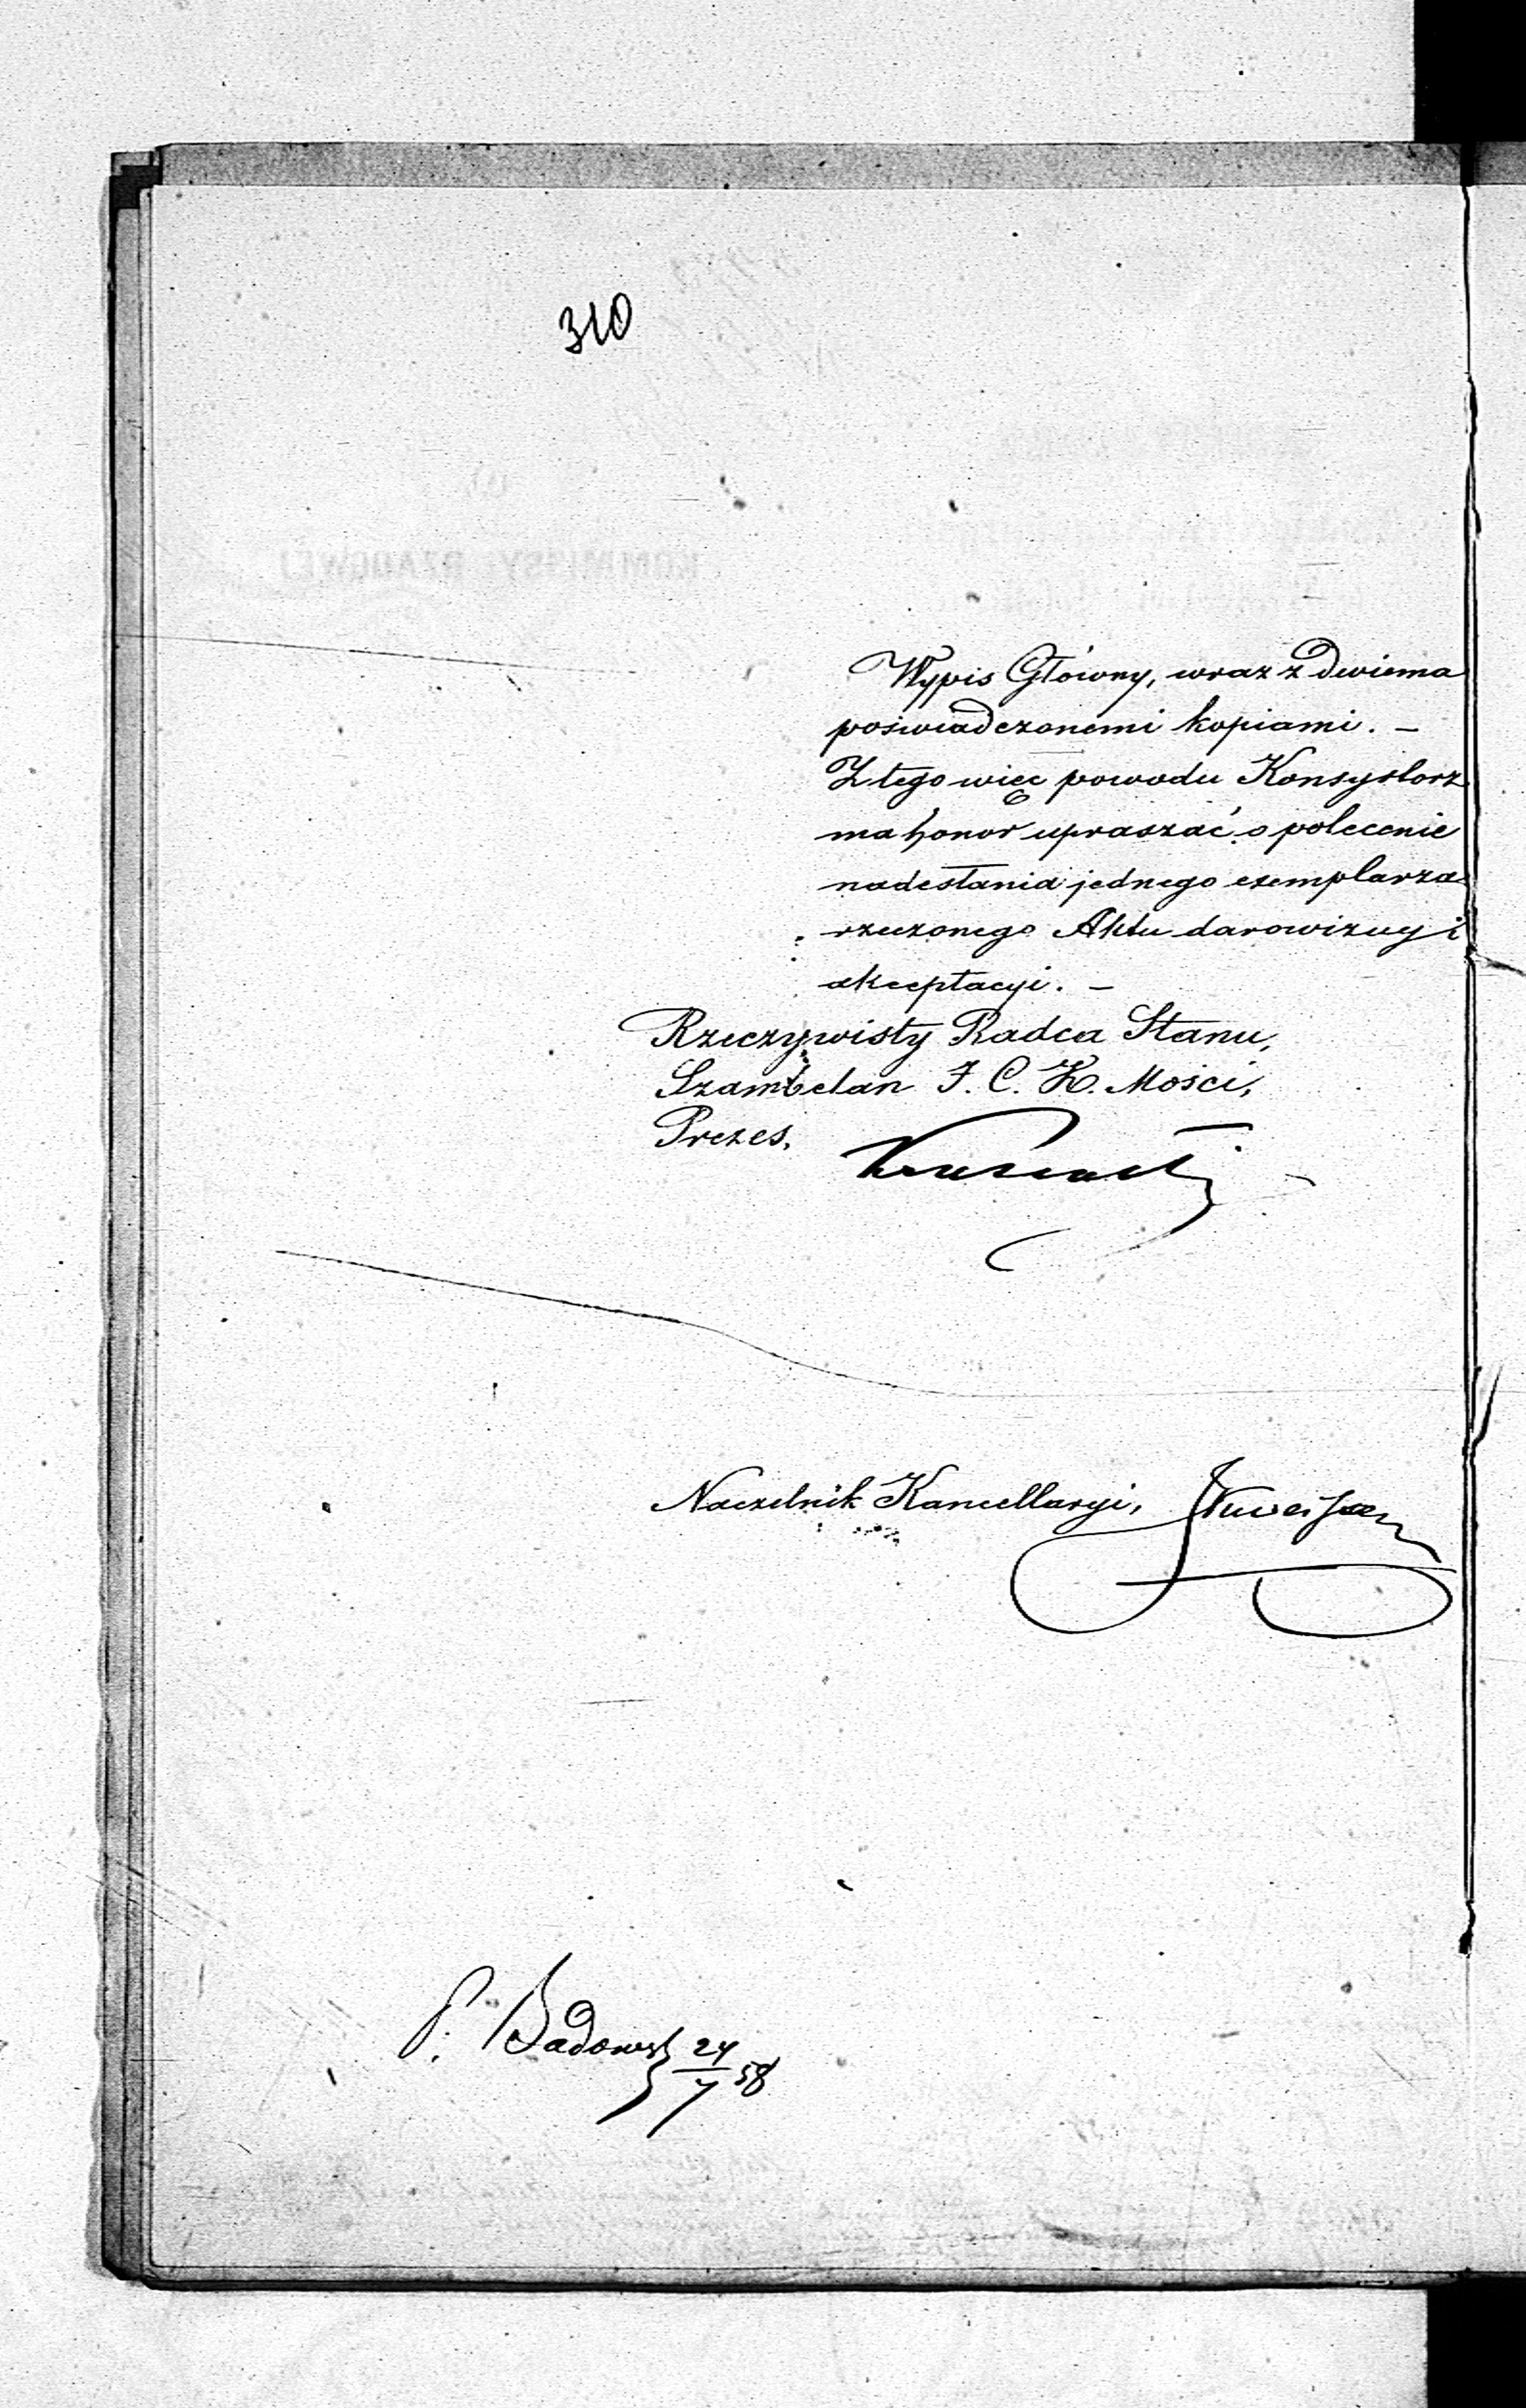 310
Wypis Główny, wraz z dwiema
poświadczonemi kopiami. –
Z tego więc powodu Konsystorz
ma honor upraszać o polecenie
nadesłania jednego exemplarza
rzeczonego Aktu darowizny i
akceptacyi. –
Rzeczywisty Radca Stanu,
Szambelan J. C. K. Mości,
Prezes,
Naczelnik Kancellaryi,
P. Badowski 24/7 58